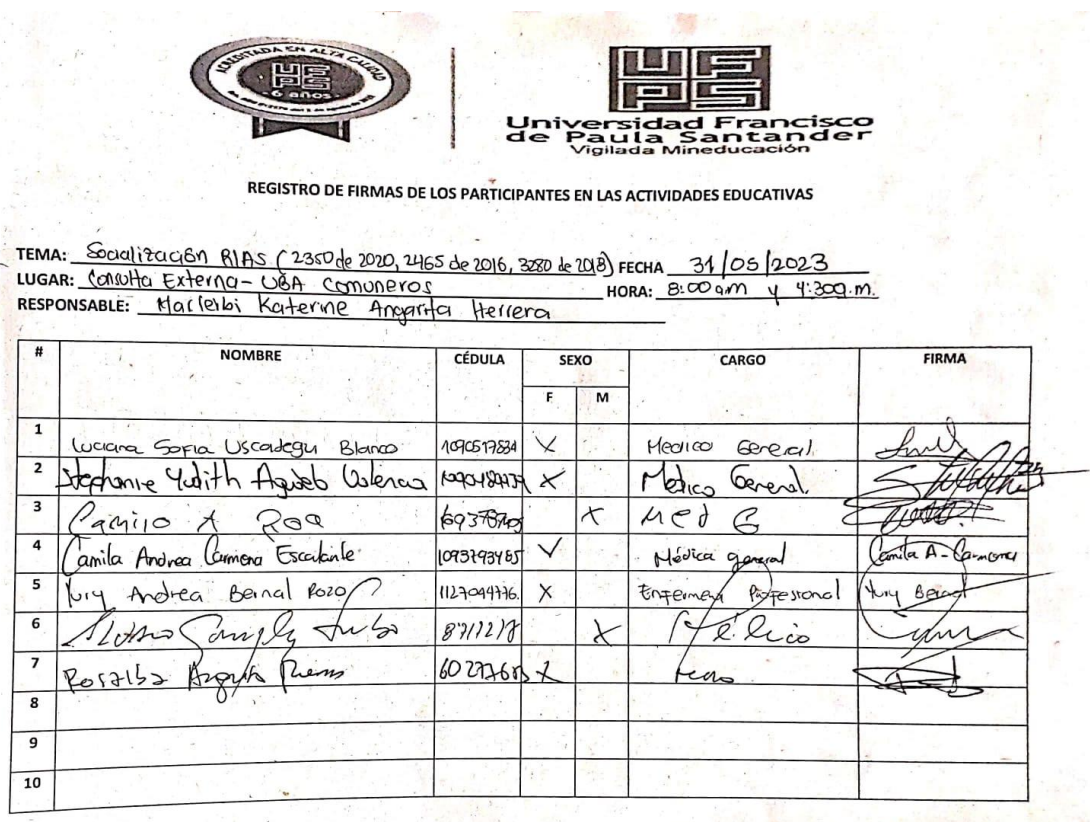 ACREDITADA EN ALTA CALIDAD
UFPS
6 años
UFPS
Universidad Francisco
de Paula Santander
Vigilada Mineducación
REGISTRO DE FIRMAS DE LOS PARTICIPANTES EN LAS ACTIVIDADES EDUCATIVAS
TEMA: Socialización RIAS (2350 de 2020, 2465 de 2016, 3280 de 2018) FECHA 31/05/2023
LUGAR: Consulta Externa - UBA Comuneros HORA: 8:00 am y 4:30 p.m.
RESPONSABLE: Marleibi Katerine Angarita Herrera
# NOMBRE CÉDULA SEXO CARGO FIRMA
F M
1 Luciana Sofia Uscategui Blanco 1090517834 X Medico General
2 Stephanie Yudith Agudelo Valencia X Medico General
3 Camilo A Roa X Med G
4 Camila Andrea Carmona Escalante 1093793485 X Médica general Camila A. Carmona
5 Yury Andrea Bernal Rozo 1127044776 X Enfermera Profesional Yury Bernal
6 X Médico
7 Rosalba X
8
9
10